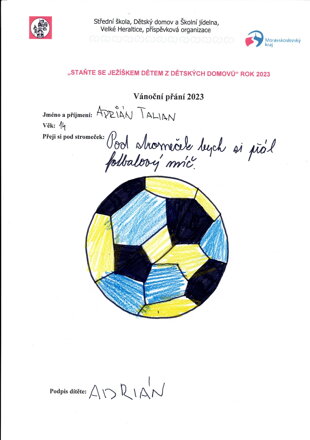 Střední škola, Dětský domov a Školní jídelna,
Velké Heraltice, příspěvková organizace
Moravskoslezský
kraj
„STAŇTE SE JEŽÍŠKEM DĚTEM Z DĚTSKÝCH DOMOVŮ“ ROK 2023
Vánoční přání 2023
Jméno a příjmení: ADRIÁN TALIAN
Věk: 14
Přeji si pod stromeček: Pod stromeček bych si přál
fotbalový míč.
Podpis dítěte: ADRIÁN